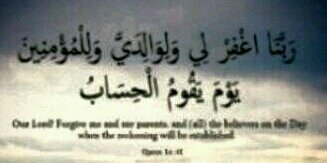 رَبَّنَا اغْفِرْ لِي وَلِوَالِدَيَّ وَلِلْمُؤْمِنِينَ
يَوْمَ يَقُومُ الْحِسَابُ
Our Lord! Forgive me and my parents, and (all) the believers on the Day
when the reckoning will be established.
Quran 14:41